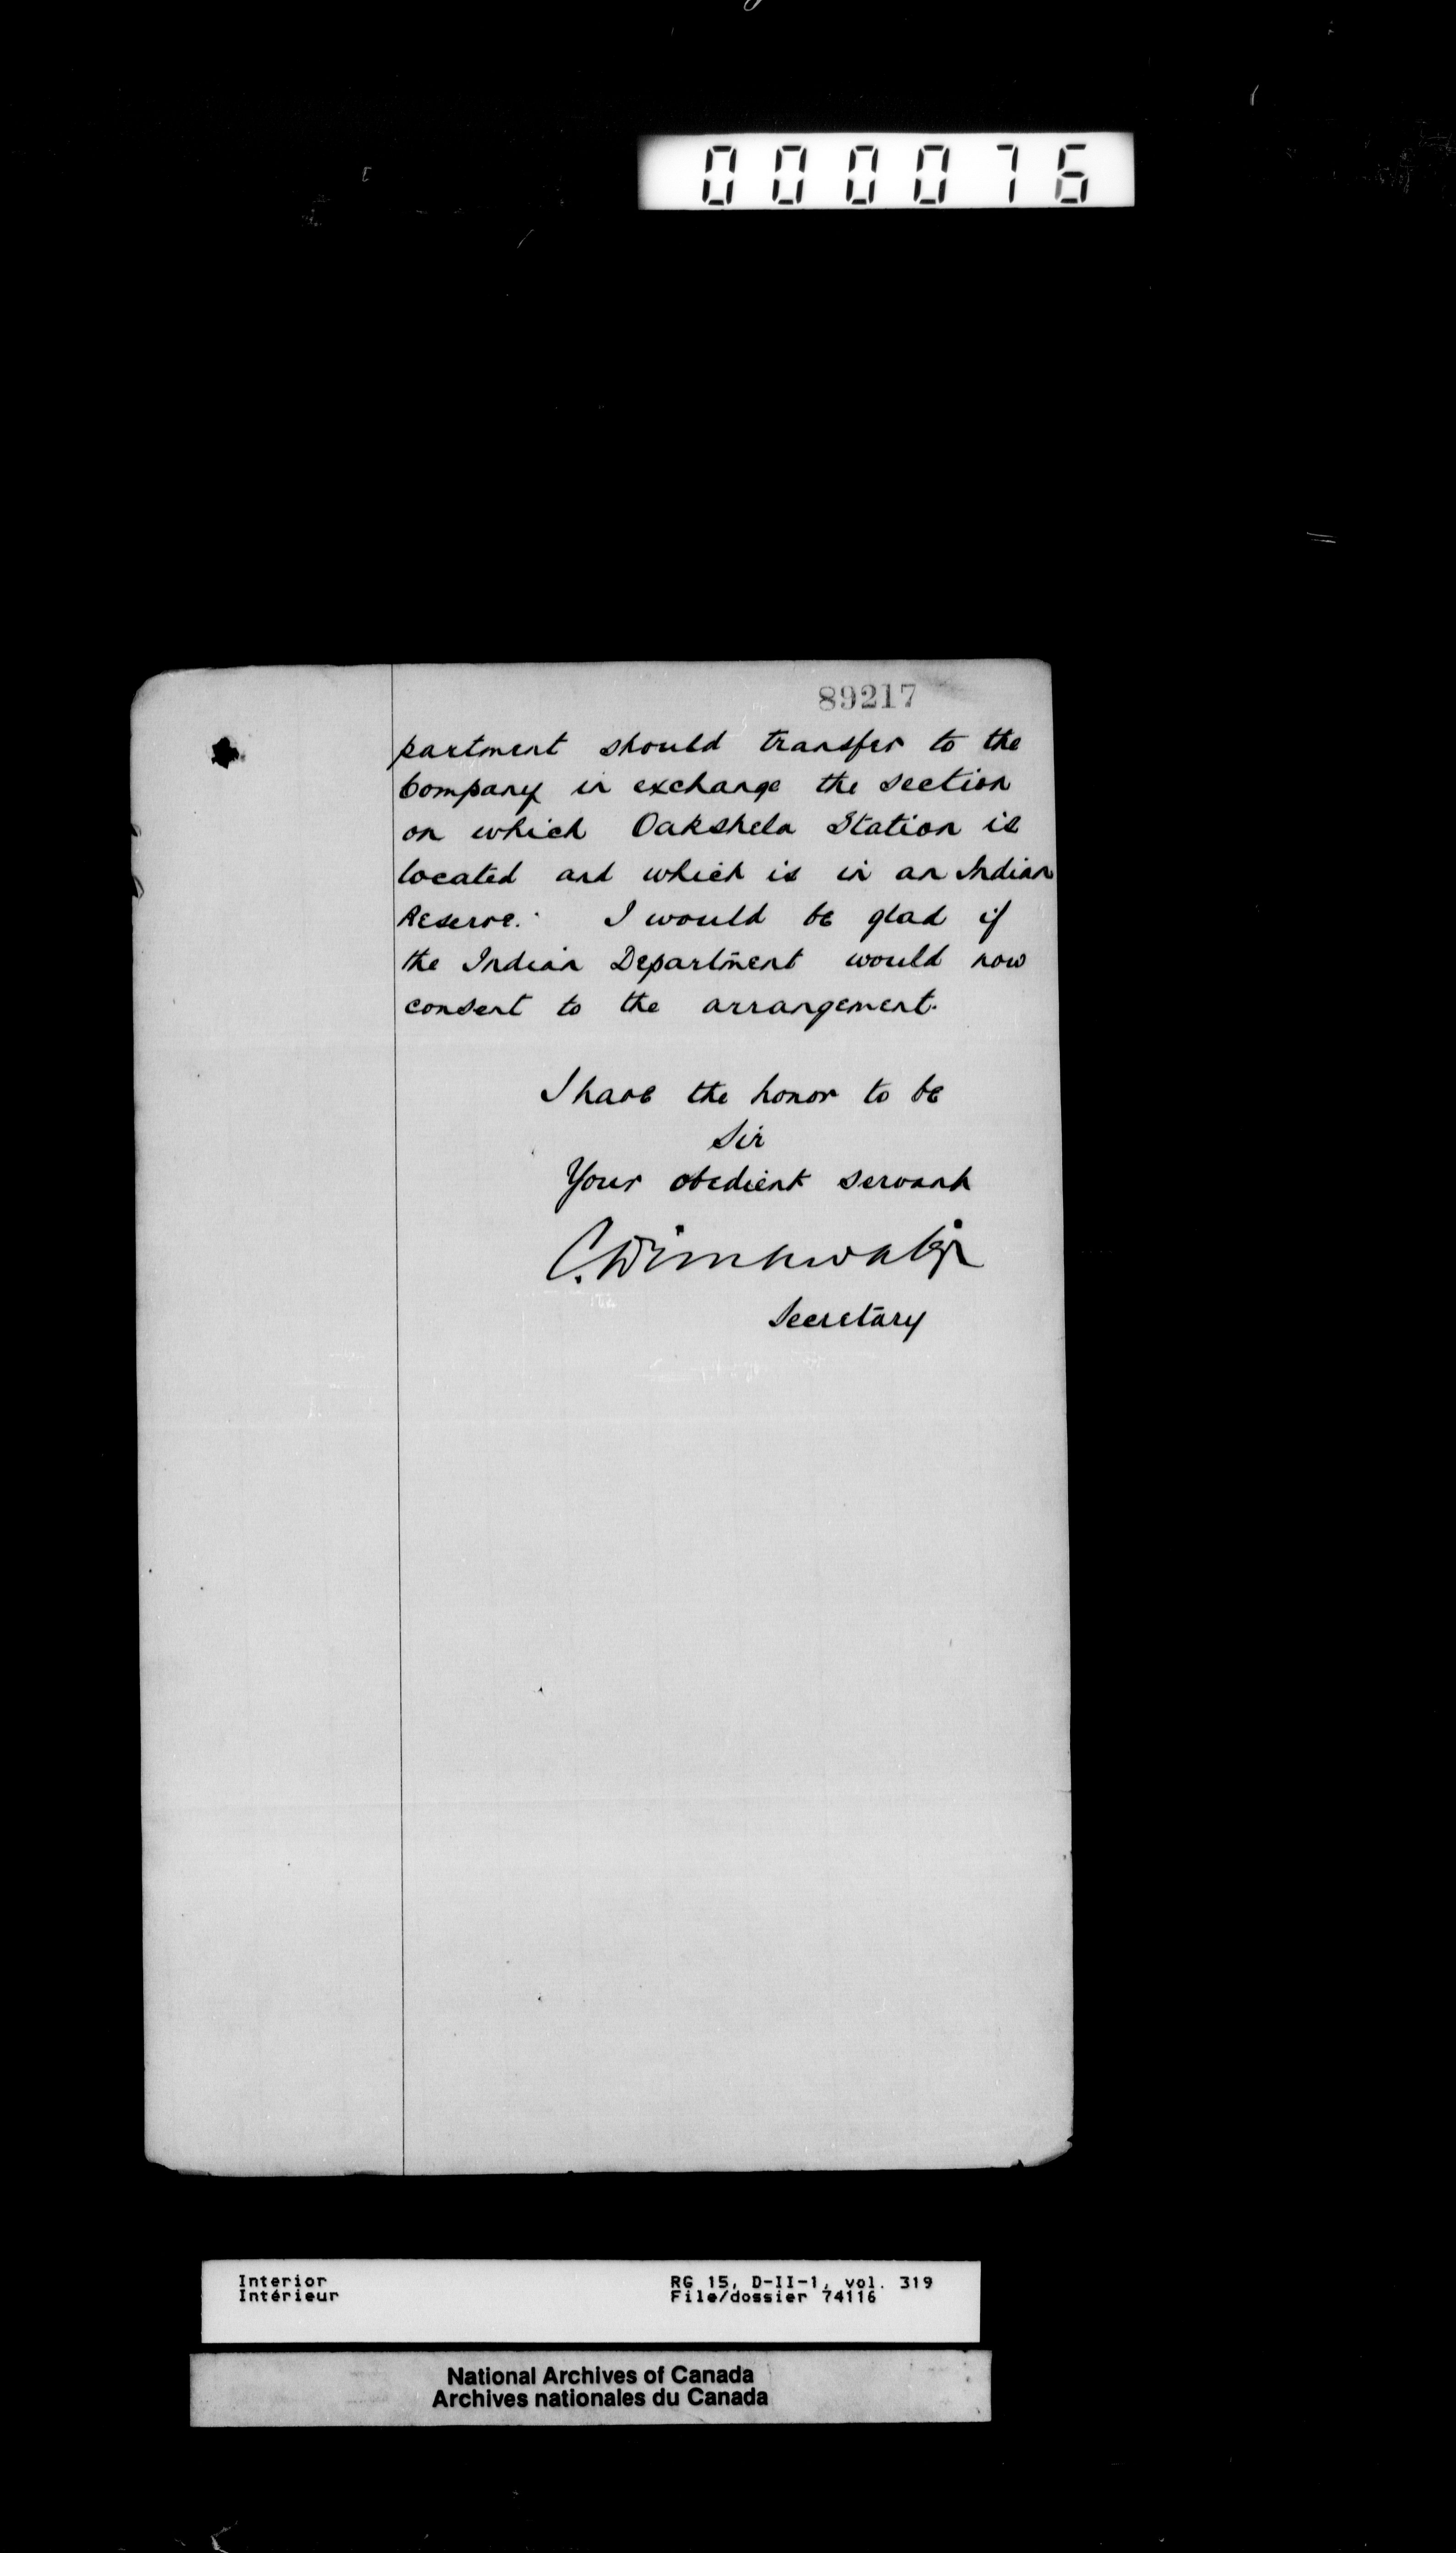 000076
89217
partment should transfer to the
Company in exchange the section
on which Oakshela Station is
located and which is in an Indian
Reserve. I would be glad if
the Indian Department would now
consent to the arrangement.
I have the honor to be
Sir
Your obedient servant
C. Drinkwater
Secretary
Interior
Intérieur
RG 15, D-II-1, vol. 319
File/dossier 74116
National Archives of Canada
Archives nationales du Canada